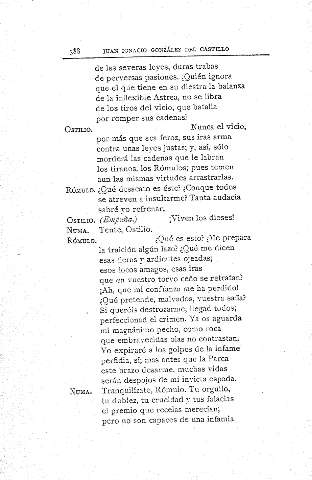 388 JUAN IGNACIO GONZÁLEZ DEL CASTILLO
de las severas leyes, duras trabas
de perversas pasiones. ¡Quién ignora
que el que tiene en su diestra la balanza
de la inflexible Astrea, no se libra
de los tiros del vicio, que batalla
por romper sus cadenas!
OSTILIO. Nunca el vicio,
por más que sea feroz, sus iras arma
contra unas leyes justas; y, así, sólo
morderá las cadenas que le labran
los tiranos, los Rómulos; pues temen
aun las mismas virtudes arrastrarlas.
RÓMULO. ¿Qué desacato es éste? ¿Conque todos
se atreven a insultarme? Tanta audacia
sabré yo refrenar.
OSTILIO. (Empuña.) ¡Viven los dioses!
NUMA. Tente, Ostilio.
RÓMULO. ¿Qué es esto? ¿Me prepara
la traición algún lazo? ¿Qué me dicen
esas fieras y ardientes ojeadas;
esos locos amagos, esas iras
que en vuestro torvo ceño se retratan?
¡Ah, que mi confianza me ha perdido!
¿Qué pretende, malvados, vuestra saña?
Si queréis destrozarme, llegad todos;
perfeccionad el crimen. Ya os aguarda
mi magnánimo pecho, como roca
que embravecidas olas no contrastan.
Yo expiraré a los golpes de la infame
perfidia, sí; mas antes que la Parca
este brazo desarme, muchas vidas
serán despojos de mi invicta espada.
NUMA. Tranquilízate, Rómulo. Tu orgullo,
tu doblez, tu crueldad y tus falacias
el premio que recelas merecían;
pero no son capaces de una infamia